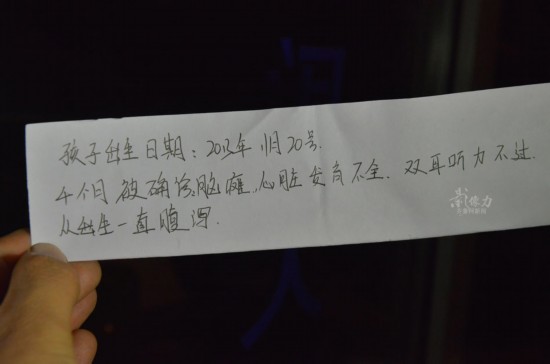 孩子出生日期：2013年11月20号.
4个月被确诊脑瘫,心脏发育不全.双耳听力不过.
从出生一直腹泻.
影像力